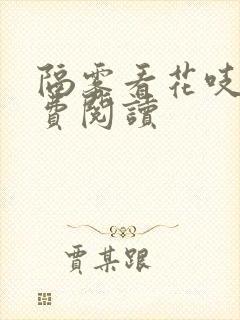 隔雾看花吱
费阅读
贾某跟